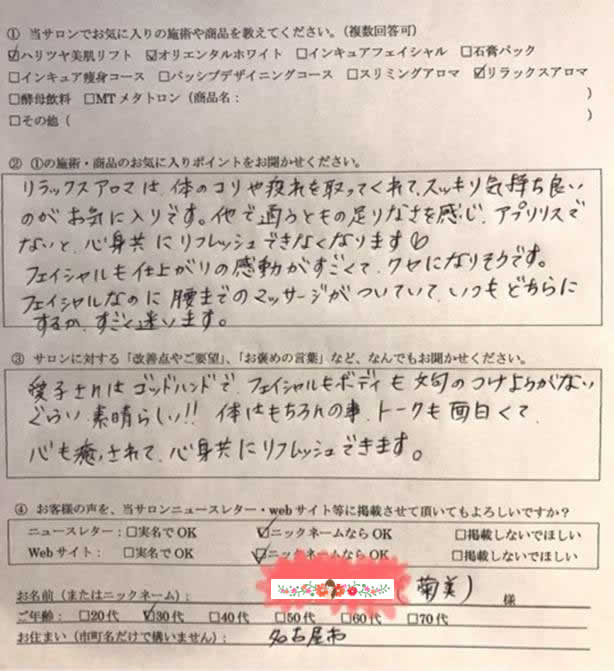 ① 当サロンでお気に入りの施術や商品を教えてください。（複数回答可）
☑ハリツヤ美肌リフト ☑オリエンタルホワイト □インキュアフェイシャル □石膏パック
□インキュア痩身コース □パッシブデザイニングコース □スリミングアロマ ☑リラックスアロマ
□酵母飲料 □MTメタトロン（商品名： ）
□その他（ ）
② ①の施術・商品のお気に入りポイントをお聞かせください。
リラックスアロマは、体のコリや疲れを取ってくれて、スッキリ気持ち良い
のがお気に入りです。他で通うともの足りなさを感じ、アプリリスで
ないと、心身共にリフレッシュできなくなります♡
フェイシャルも仕上がりの感動がすごくて、クセになりそうです。
フェイシャルなのに腰までのマッサージがついていて、いつもどちらに
するか、すごく迷います。
③ サロンに対する「改善点やご要望」、「お褒めの言葉」など、なんでもお聞かせください。
愛子さんはゴッドハンドで、フェイシャルもボディも文句のつけようがない
ぐらい素晴らしい!! 体はもちろんの事、トークも面白くて、
心も癒されて、心身共にリフレッシュできます。
④ お客様の声を、当サロンニュースレター・webサイト等に掲載させて頂いてもよろしいですか？
ニュースレター：□実名でOK ☑ニックネームならOK □掲載しないでほしい
Webサイト： □実名でOK ☑ニックネームならOK □掲載しないでほしい
お名前（またはニックネーム）： （菊美） 様
ご年齢： □20代 ☑30代 □40代 □50代 □60代 □70代
お住まい（市町名だけで構いません）： 名古屋市